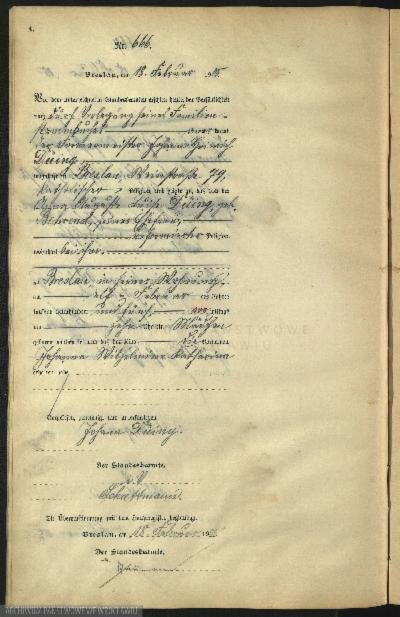 A.
Nr. 666.
Breslau, am 18. Februar 1905.
Vor dem unterzeichneten Standesbeamten erschien heute, der Persönlichkeit
nach durch Vorlegung seines Familien-
stammbuchs
der Johann Heinrich
Düing,
wohnhaft in Breslau, Weinstraße 79,
katholischer Religion, und zeigte an, daß von der
Anna Auguste Luise Düing, geb.
Behrend, seiner Ehefrau,
reformierter Religion,
wohnhaft bei ihm,
zu Breslau in seiner Wohnung
am elf Februar des Jahres
tausend neunhundert und fünf
zehn Uhr ein Mädchen
geboren worden sei und daß das Kind die Vornamen
Johanna Wilhelmine Katharina
erhalten habe
Vorgelesen, genehmigt und unterschrieben
Johann Düing.
Der Standesbeamte.
I. V.
Schattmann
Die Übereinstimmung mit dem Hauptregister beglaubigt.
Breslau, am 18. Februar 1905
Der Standesbeamte.
ARCHIWUM PAŃSTWOWE WE WROCŁAWIU